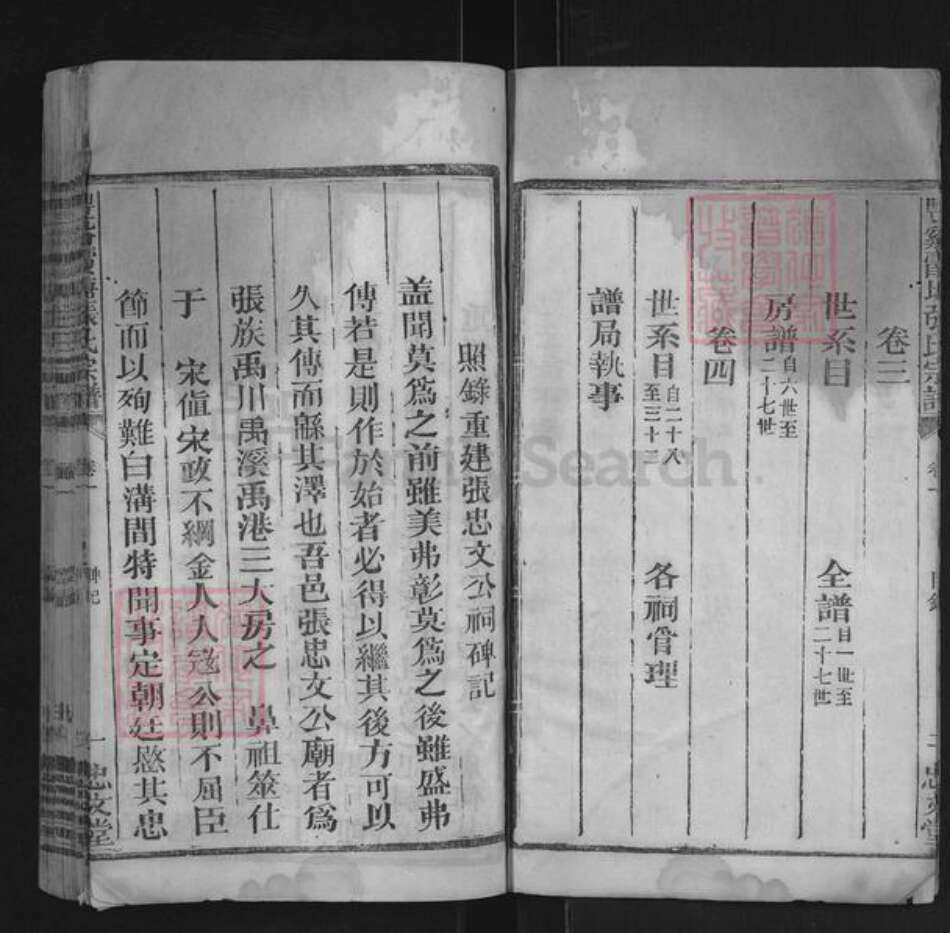 卷三
世系目
全譜自一世至二十七世
房譜自六世至二十七世
卷四
世系目自二十八至三十二
各祠管理
譜局執事
忠文堂
照錄重建張忠文公祠碑記
盖聞莫爲之前雖美弗彰莫爲之後雖盛弗
傳若是則作於始者必得以繼其後方可以
久其傳而繇其澤也吾邑張忠文公廟者爲
張族禹川禹溪禹港三大房之 鼻祖筮仕
于 宋值宋政不綱金人人寇公則不屈臣
節而以殉難白溝間特聞事定朝廷愍其忠
張氏宗譜
卷一
碑記
一
忠文堂
FamilySearch